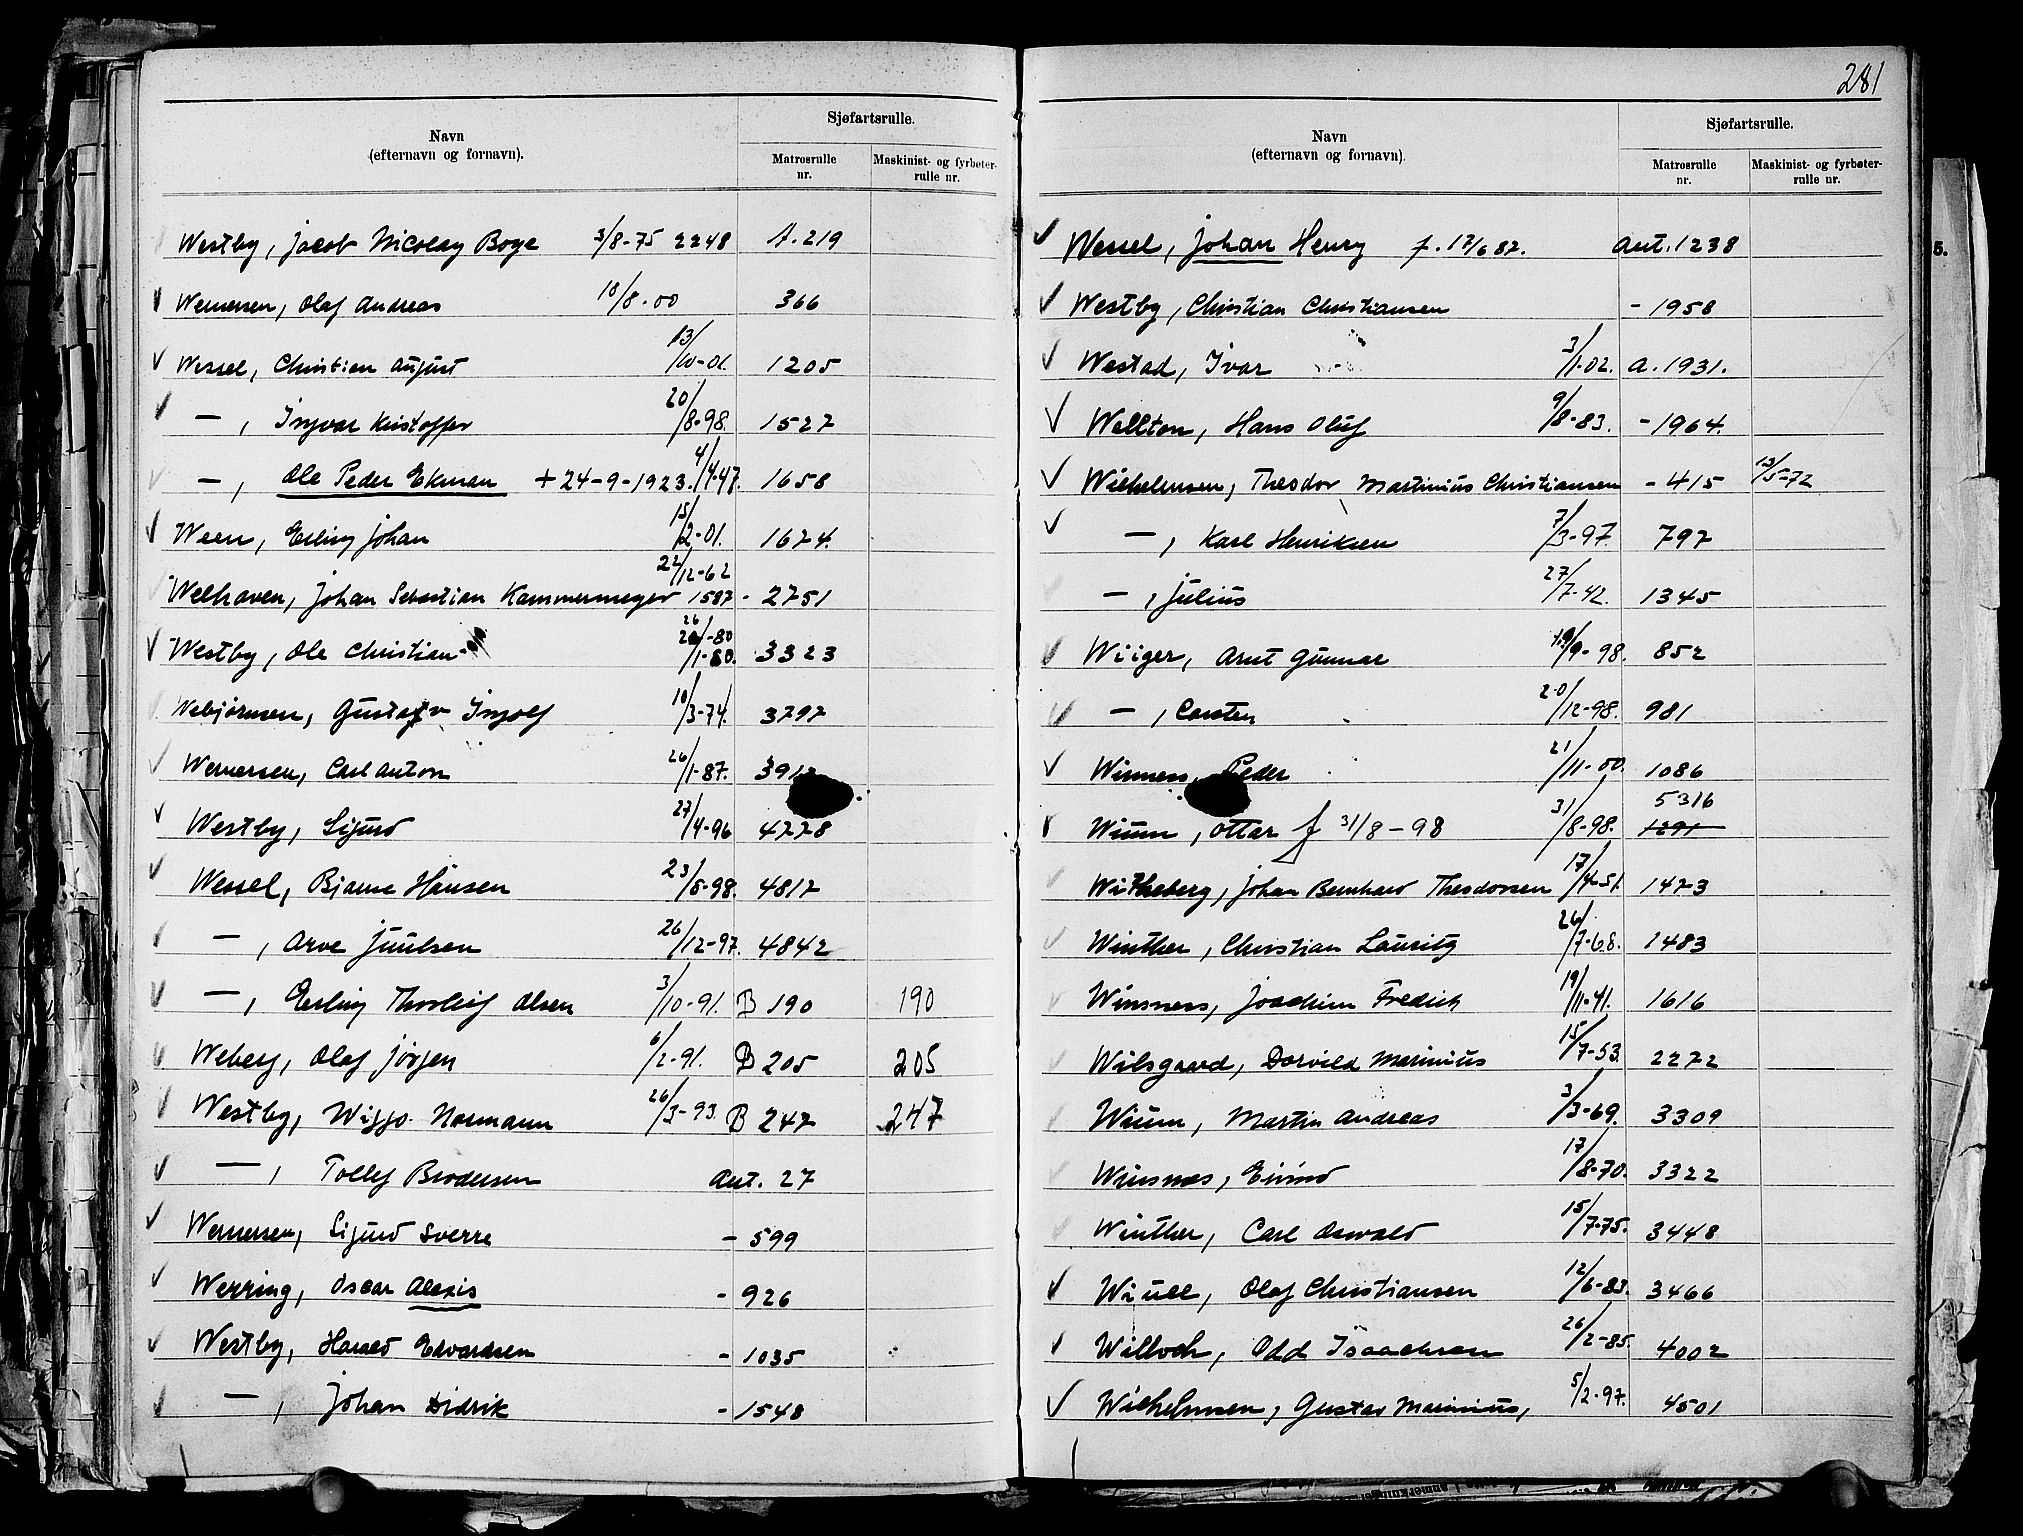 Navn
(efternavn og fornavn).
Sjøfartsrulle.
Matrosrulle nr.
Maskinist- og fyrbøter-rulle nr.
Westby, Jacob Nicolay Boye 3/8-75 2248 A. 219
Wernersen, Olaf Andreas 10/8-00 366
Wessel, Christian August 13/10-01. 1205
— , Ingvar Kristoffer 20/8-98. 1527
— , Ole Peder Ekman + 24-9-1923. 4/4-47. 1658
Ween, Erling Johan 15/2-01. 1674.
Welhaven, Johan Sebastian Kammermeyer 22/12-62 1587 - 2751
Westby, Ole Christian 26/1-80. 3323
Webjørnsen, Gustav Ingolf 10/3-74. 3797
Wernersen, Carl Anton 26/1-87. 391
Westby, Sigurd 27/4-96 4778
Wessel, Bjarne Hansen 23/5-98. 4817
— , Arve Juulsen 26/12-97. 4842
— , Erling Thorleif Olsen 3/10-91. B 190 190
Weberg, Olaf Jørgen 6/2-91. B 205 205
Westby, Wiggo Normann 26/3-93 B 247 247
— , Tollef Brodersen Ant. 27
Wernersen, Sigurd Sverre - 599
Werring, Oscar Alexis - 926
Westby, Harald Edvardsen - 1035
— , Johan Didrik - 1548
281
Navn
(efternavn og fornavn).
Sjøfartsrulle.
Matrosrulle nr.
Maskinist- og fyrbøter-rulle nr.
Wessel, Johan Henry f. 17/6 87. Ant. 1238
Westby, Christian Christiansen - 1958
Westad, Ivar 3/1-02. A. 1931.
Wellton, Hans Oluf 9/8-83. - 1964.
Wilhelmsen, Theodor Martinius Christiansen - 415 13/5-72
— , Karl Henriksen 7/3-97. 797
— , Julius 27/7-42. 1345
Wiiger, Arnt Gunnar 19/9-98. 852
— , Carsten 20/12-98. 981
Winness, Peder 21/11-00. 1086
5316
Wium, Ottar f 31/8-98 31/8-98. 1291
Witheberg, Johan Bernhard Theodorsen 17/4-51. 1473
Winther, Christian Lauritz 26/7-68. 1483
Winsness, Joachim Fredrik 19/11-41. 1616
Wilsgaard, Dorvild Marinius 15/7-53. 2272
Wium, Martin Andreas 3/3-69. 3309
Winsnæs, Eivind 17/8-70. 3322
Winther, Carl Oswald 15/7-75. 3448
Wiull, Olaf Christiansen 12/6-83. 3466
Willoch, Odd Isaachsen 26/2-85. 4002
Wilhelmsen, Gustav Marinius, 5/2-97. 4501
5.